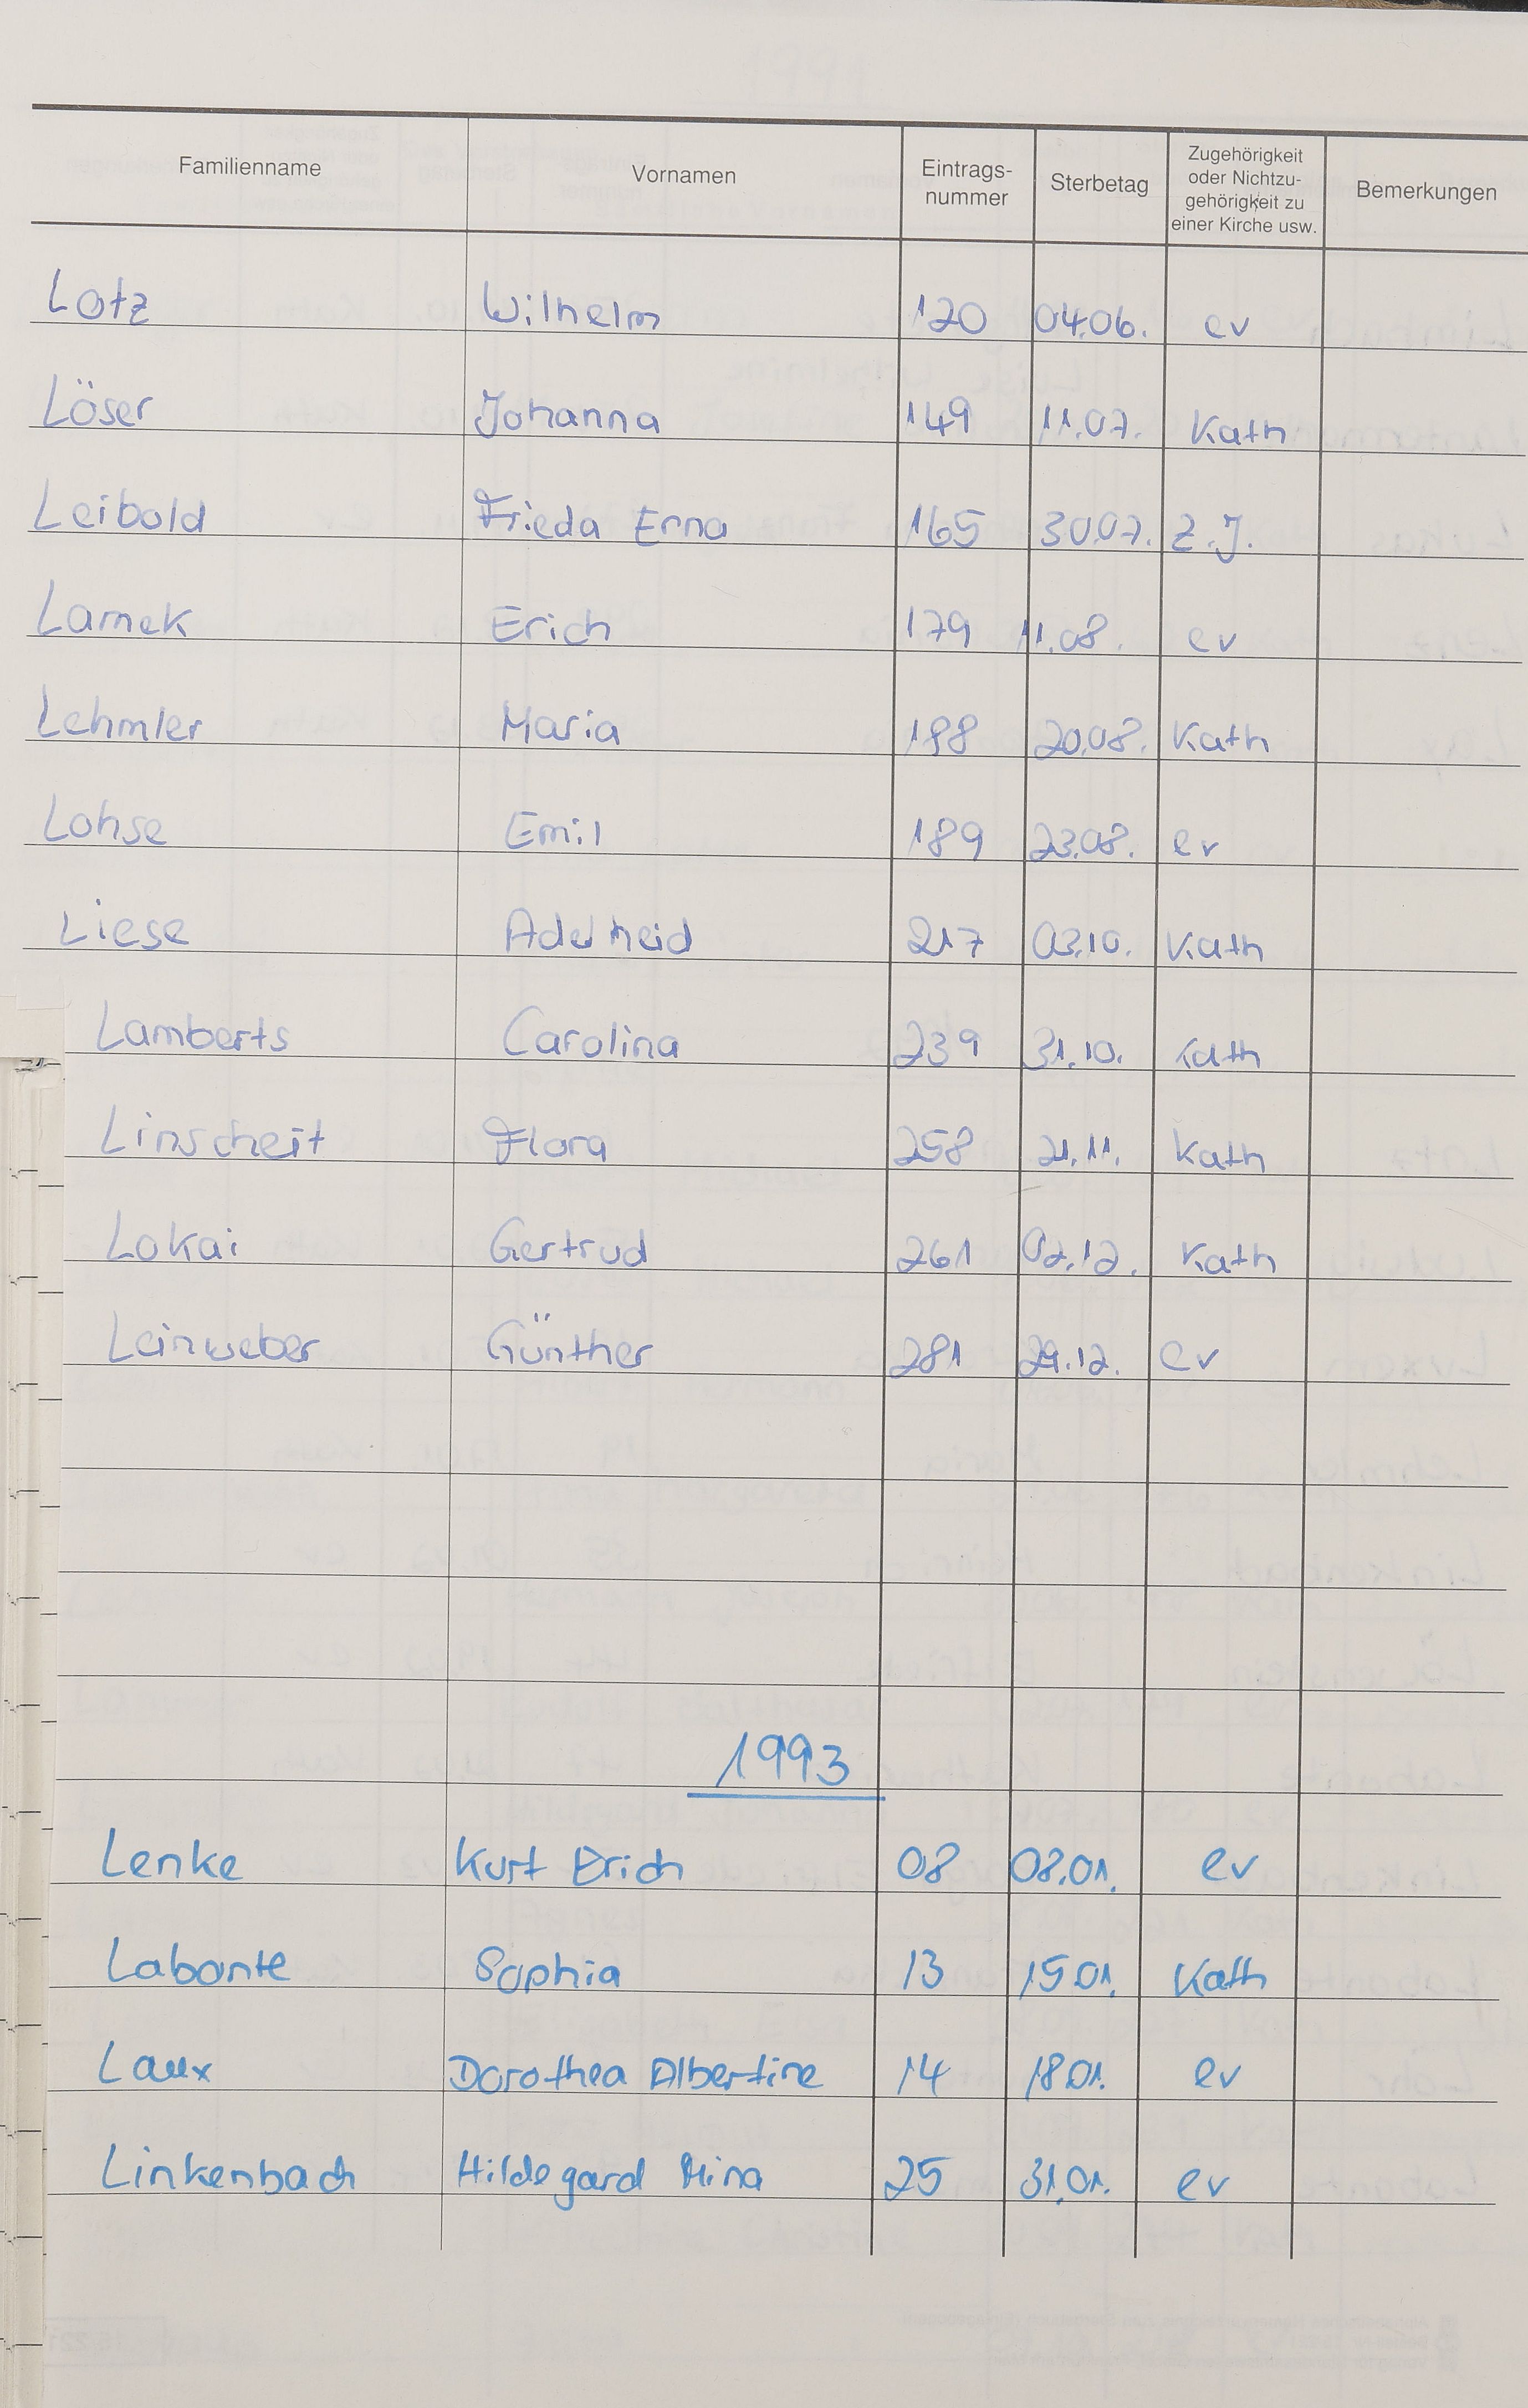 Familienname Vornamen Eintrags-nummer Sterbetag Zugehörigkeit oder Nichtzu-gehörigkeit zu einer Kirche usw. Bemerkungen
Lotz Wilhelm 120 04.06. ev
Löser Johanna 149 11.07. Kath
Leibold Frieda Erna 165 30.07. Z.J.
Lamek Erich 179 11.08. ev
Lehmler Maria 188 20.08. Kath
Lohse Emil 189 23.08. ev
Liese Adelheid 217 03.10. Kath
Lamberts Carolina 239 31.10. Kath
Linscheit Flora 258 21.11. Kath
Lokai Gertrud 261 02.12. Kath
Leinweber Günther 281 29.12. ev
1993
Lenke Kurt Erich 08 08.01. ev
Labonte Sophia 13 15.01. Kath
Laux Dorothea Albertine 14 18.01. ev
Linkenbach Hildegard Mina 25 31.01. ev